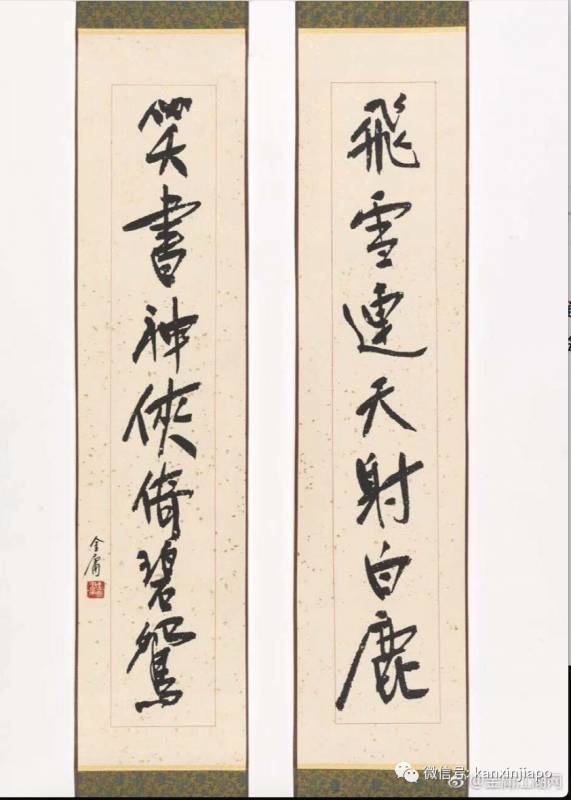 飛雪連天射白鹿
笑書神俠倚碧鴛
金庸
微信号: kanxinjiapo